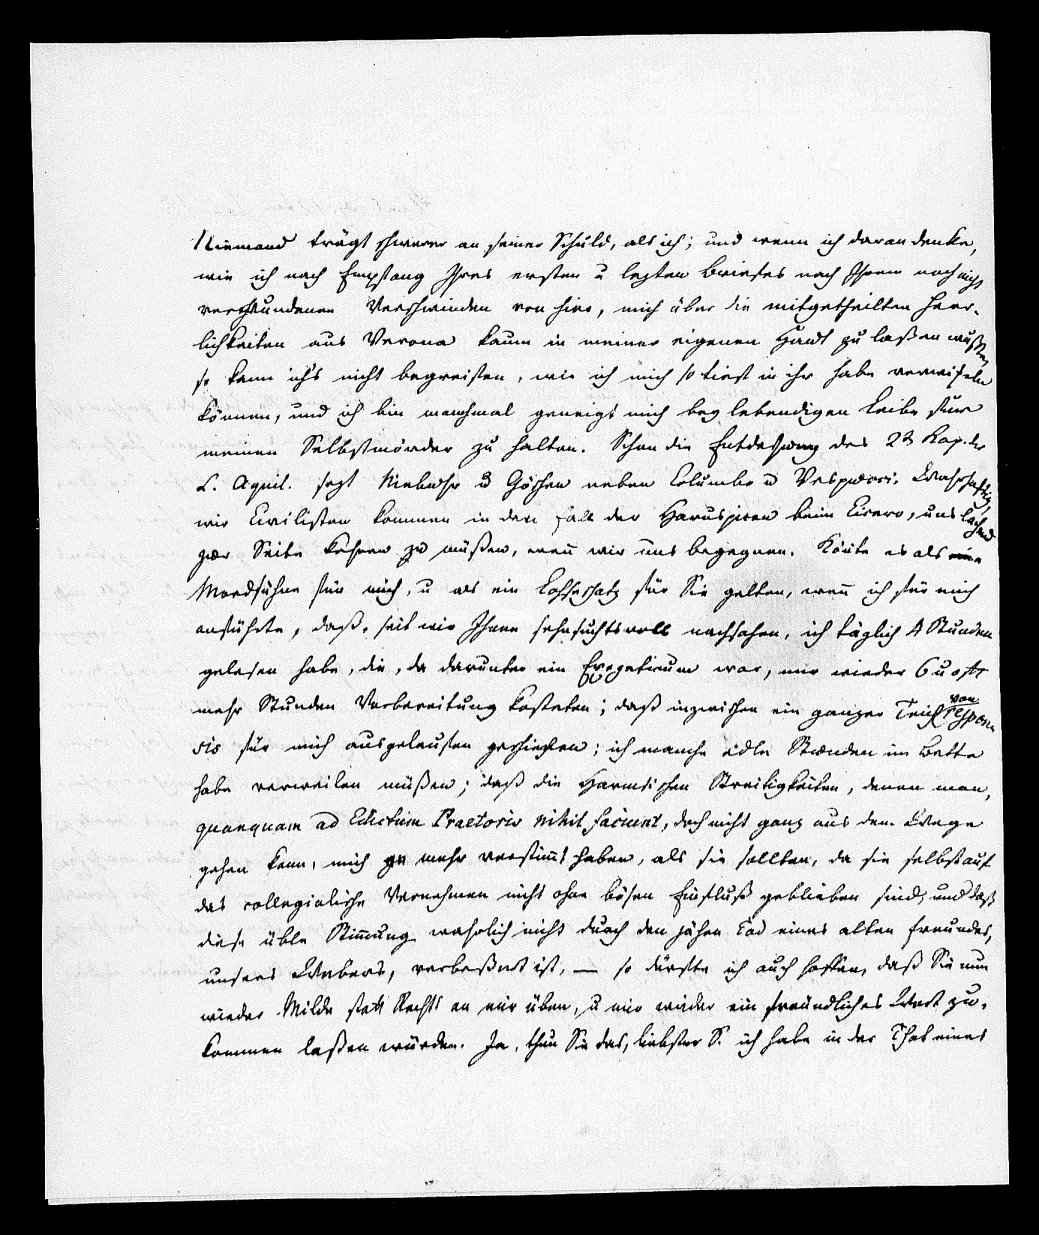 Niemand trägt schwerer an seiner Schuld, als ich; und wenn ich daran denke,
wie ich nach Empfang Ihres ersten u letzten Briefes nach Ihrem noch nicht
verschwundenen Verschwinden von hier, mich über die mitgetheilten Herr-
lichkeiten aus Verona kaum in meiner eigenen Haut zu laßen wußte,
so kann ich's nicht begreifen, wie ich mich so tief in ihr habe verwickeln
können, und ich bin manchmal geneigt mich bey lebendigen Leibe für
meinen Selbstmörder zu halten. Schon die Entdeckung des 2t Kap. der
L. Aquil. setzt Niebuhr u Göschen neben Columbo u Vespucci. Wahrhaftig,
wir Civilisten kommen in den Fall der Haruspicen beim Cicero, uns lachend
zur Seite kehren zu müßen, wenn wir uns begegnen. Könte es als eine
Mordsühne für mich, u als ein Loßschatz für Sie gelten, wenn ich für mich
anführte, daß, seit wir Ihnen sehnsuchtsvoll nachsahen, ich täglich 4 Stunden
gelesen habe, die, da darunter ein Exegeticum war, mir wieder 6 u oft
mehr Stunden Vorbereitung kosteten; daß inzwischen ein ganzer Teich von respon-
sis für mich ausgelaufen; ich manche edle Stunden im Bette
habe verweilen müßen; daß die Harmsischen Streitigkeiten, denen man,
quanquam ad Edictum Praetoris nihil faciunt, doch nicht ganz aus dem Wege
gehen kann, mich mehr verstimmt haben, als sie sollten, da sie selbst auf
das collegialische Vernehmen nicht ohne bösen Einfluß geblieben sind, und daß
diese üble Stimmung wahrlich nicht durch den jähen Tod eines alten Freundes,
unsers Webers, verbeßert ist, — so dürfte ich auch hoffen, daß Sie nun
wieder Milde statt Rechts an mir üben, u mir wieder ein freundliches Wort zu-
kommen laßen würden. Ja, thun Sie das, liebster S. ich habe in der That eines